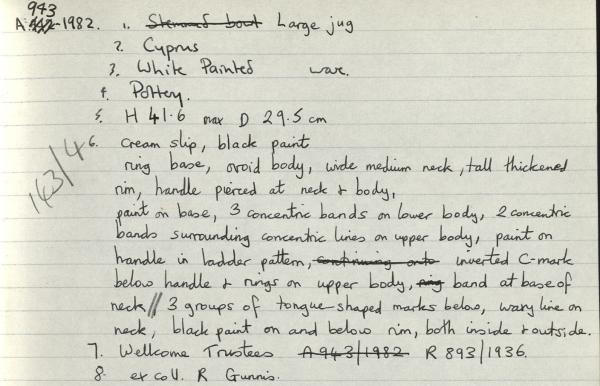 943
A.442-1982. 1. Stemmed bowl Large jug
2. Cyprus
3. White Painted ware.
4. Pottery.
5. H 41.6 max D 29.5 cm
143/4
6. cream slip, black paint
ring base, ovoid body, wide medium neck, tall thickened
rim, handle pierced at neck & body,
paint on base, 3 concentric bands on lower body, 2 concentric
bands surrounding concentric lines on upper body, paint on
handle in ladder pattern, continuing onto inverted C-mark
below handle & rings on upper body, ring band at base of
neck // 3 groups of tongue-shaped marks below, wavy line on
neck, black paint on and below rim, both inside & outside.
7. Wellcome Trustees A943/1982 R 893/1936.
8. ex coll. R Gunnis.